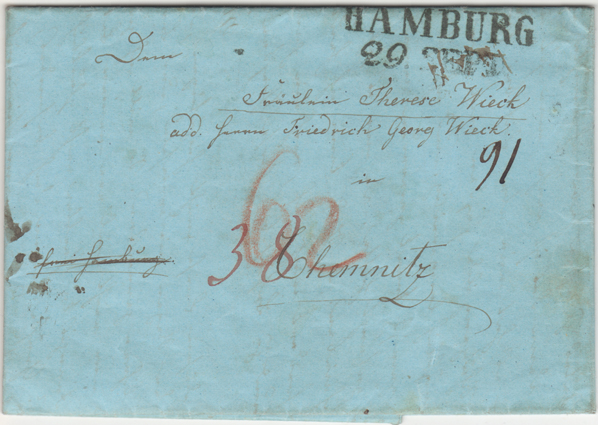 HAMBURG
29. SEPT
Dem
Fräulein Therese Wieck
add. Herrn Friedrich Georg Wieck.
91
in
62
38
Chemnitz
frei Hamburg